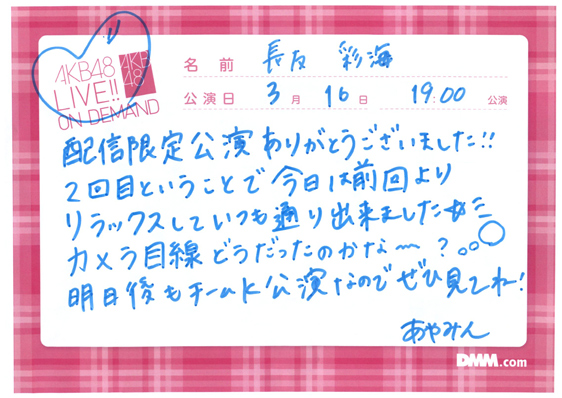 AKB48
LIVE!!
ON DEMAND
AKB
48
名前 長友 彩海
公演日 3月16日 19:00 公演
配信限定公演ありがとうございました!!
2回目ということで今日は前回より
リラックスしていつも通り出来ました
カメラ目線どうだったのかな〜?
明日後もチームK公演なのでぜひ見てね!
あやみん
DMM.com